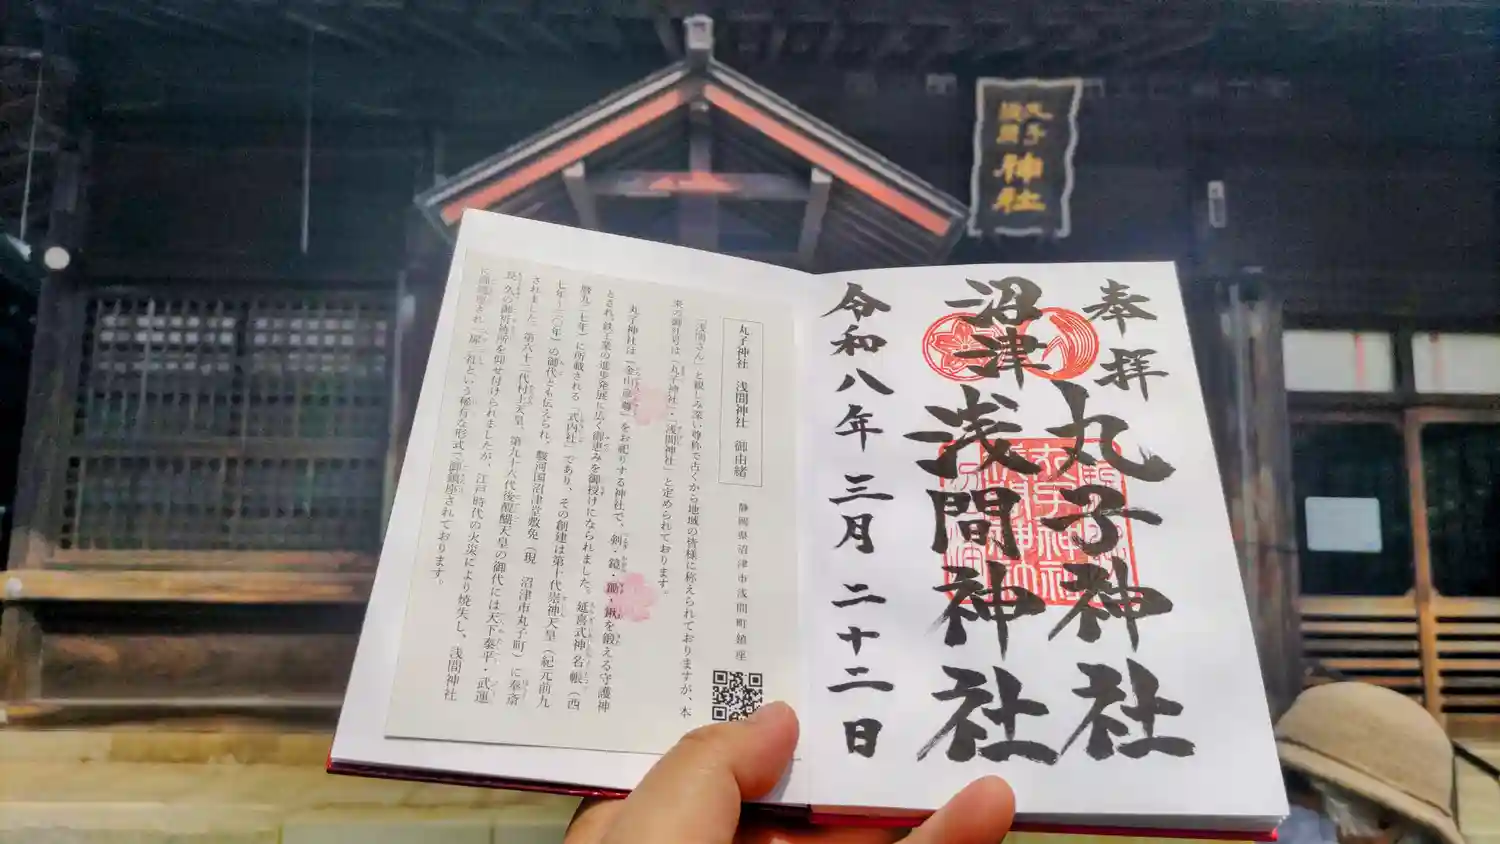 丸子
浅間
神社
奉拝
丸子神社
沼津
浅間神社
令和八年三月二十二日
丸子神社 浅間神社 御由緒
静岡県沼津市浅間町鎮座
「浅間さん」と親しみ深い尊称で古くから地域の皆様に称えられておりますが、本
来の御社号は「丸子神社」・「浅間神社」と定められております。
丸子神社は「金山彦尊」をお祀りする神社で、剣・鏡・鋤・鍬を鍛える守護神
とされ、鉄工業の進歩発展に広く御恵みを御授けになられました。延喜式神名帳(西
暦九二七年)に所載される「式内社」であり、その創建は第十代崇神天皇(紀元前九
七年~三〇年)の御代とも伝えられ、駿河国沼津堂敷免(現 沼津市丸子町)に奉斎
されました。第六十二代村上天皇、第九十六代後醍醐天皇の御代には天下泰平・武運
長久の御祈祷所を仰せ付けられましたが、江戸時代の火災により焼失し、浅間神社
に御遷座され「扉二社」という稀有な形式で御鎮座されております。